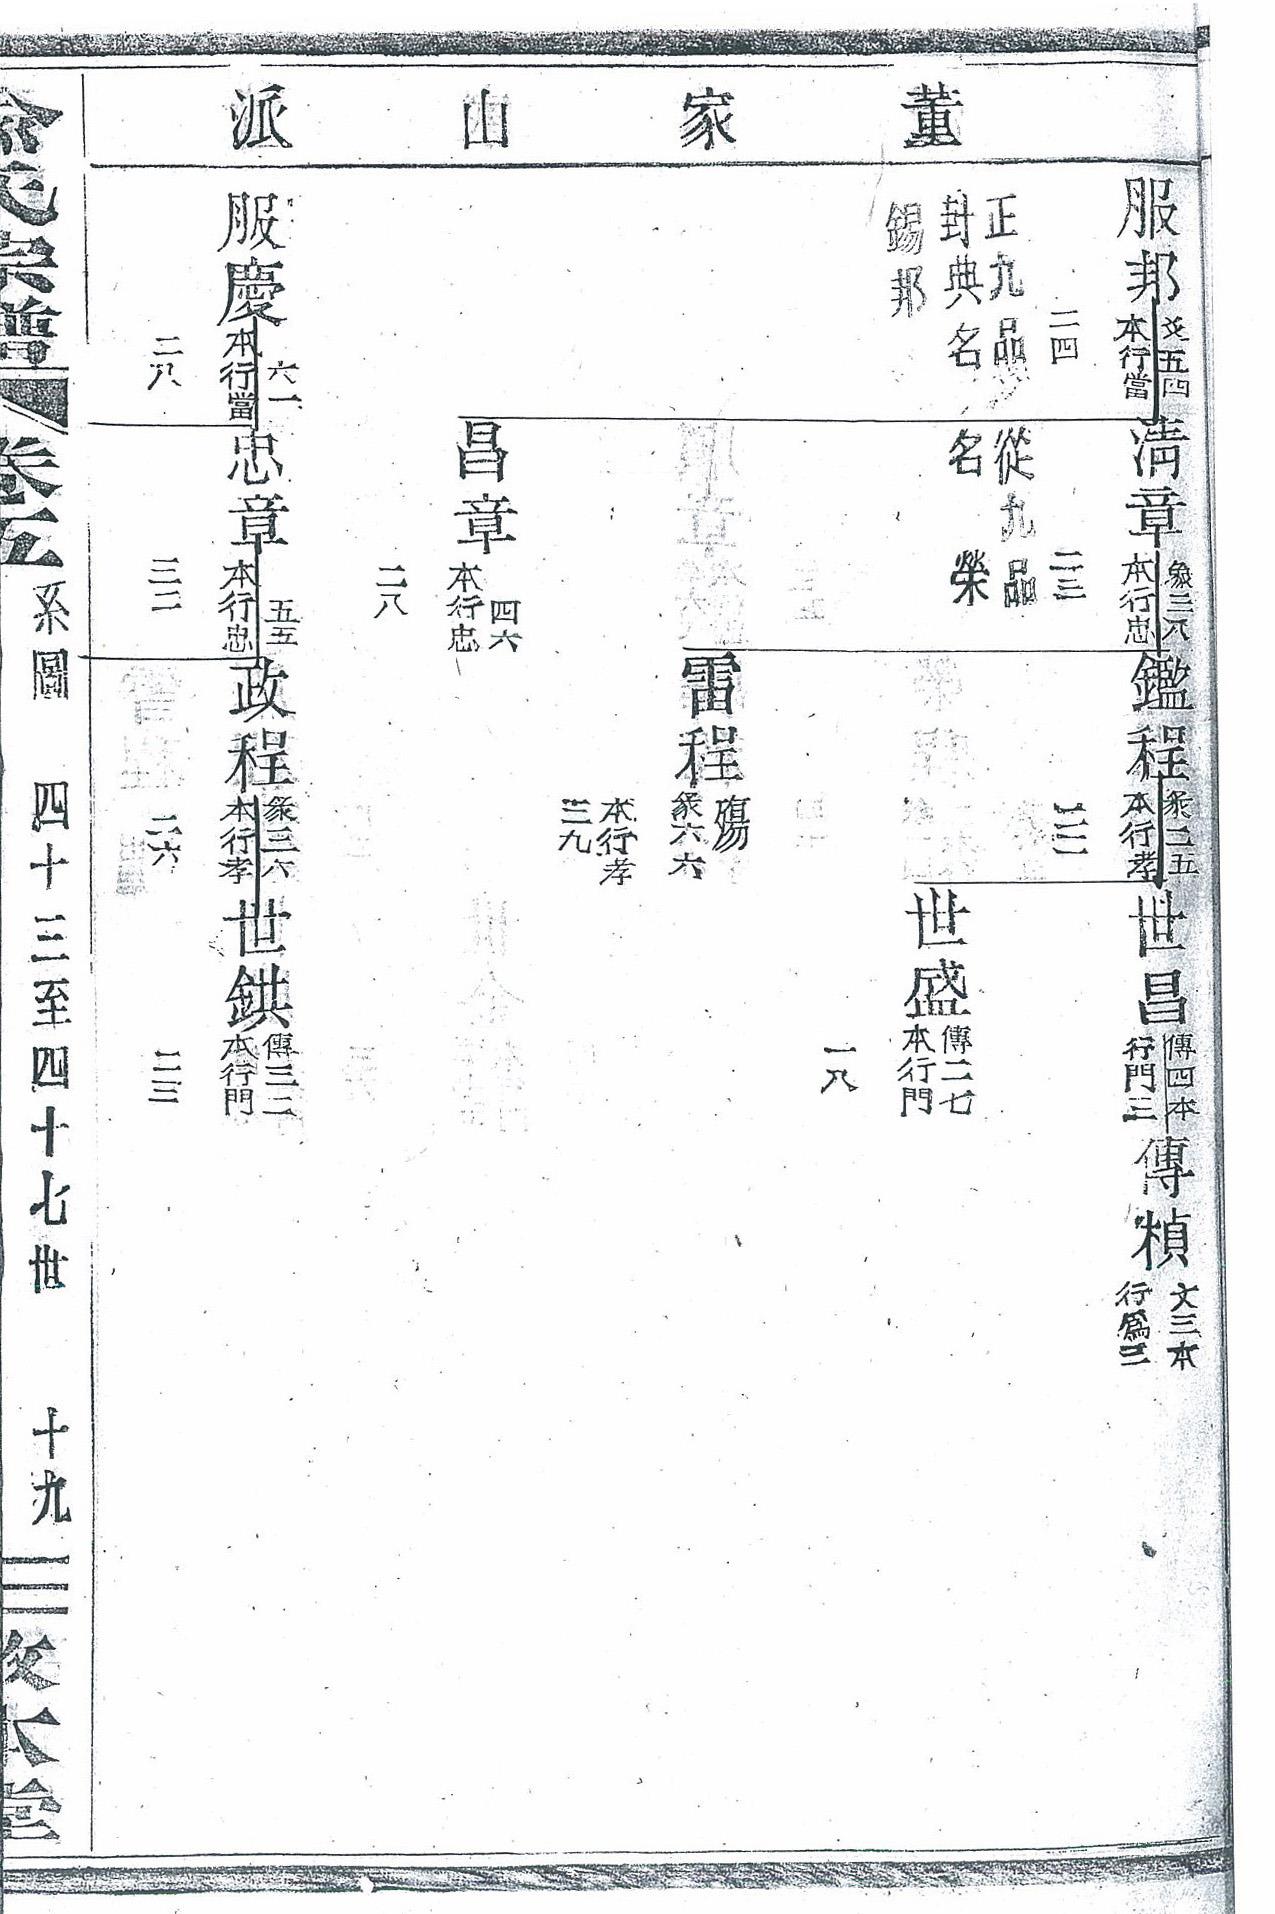 董家山派
服邦
五四
本行當
二四
正九品
封典名
錫邦
清章
象三八
本行忠
二三
從九品
名 榮
鑑程
象二五
本行孝
世昌
傳四本
行門三
傳楨
文三本
行爲三
世盛
傳二七
本行門
一八
雷程
殤
象六六
本行孝
三九
昌章
四六
本行忠
二八
服慶
六一
本行當
二八
忠章
五五
本行忠
三二
政程
象三六
本行孝
二六
世鉷
傳三二
本行門
二三
俞氏宗譜 卷五 系圖 四十三至四十七世 十九 敦本堂